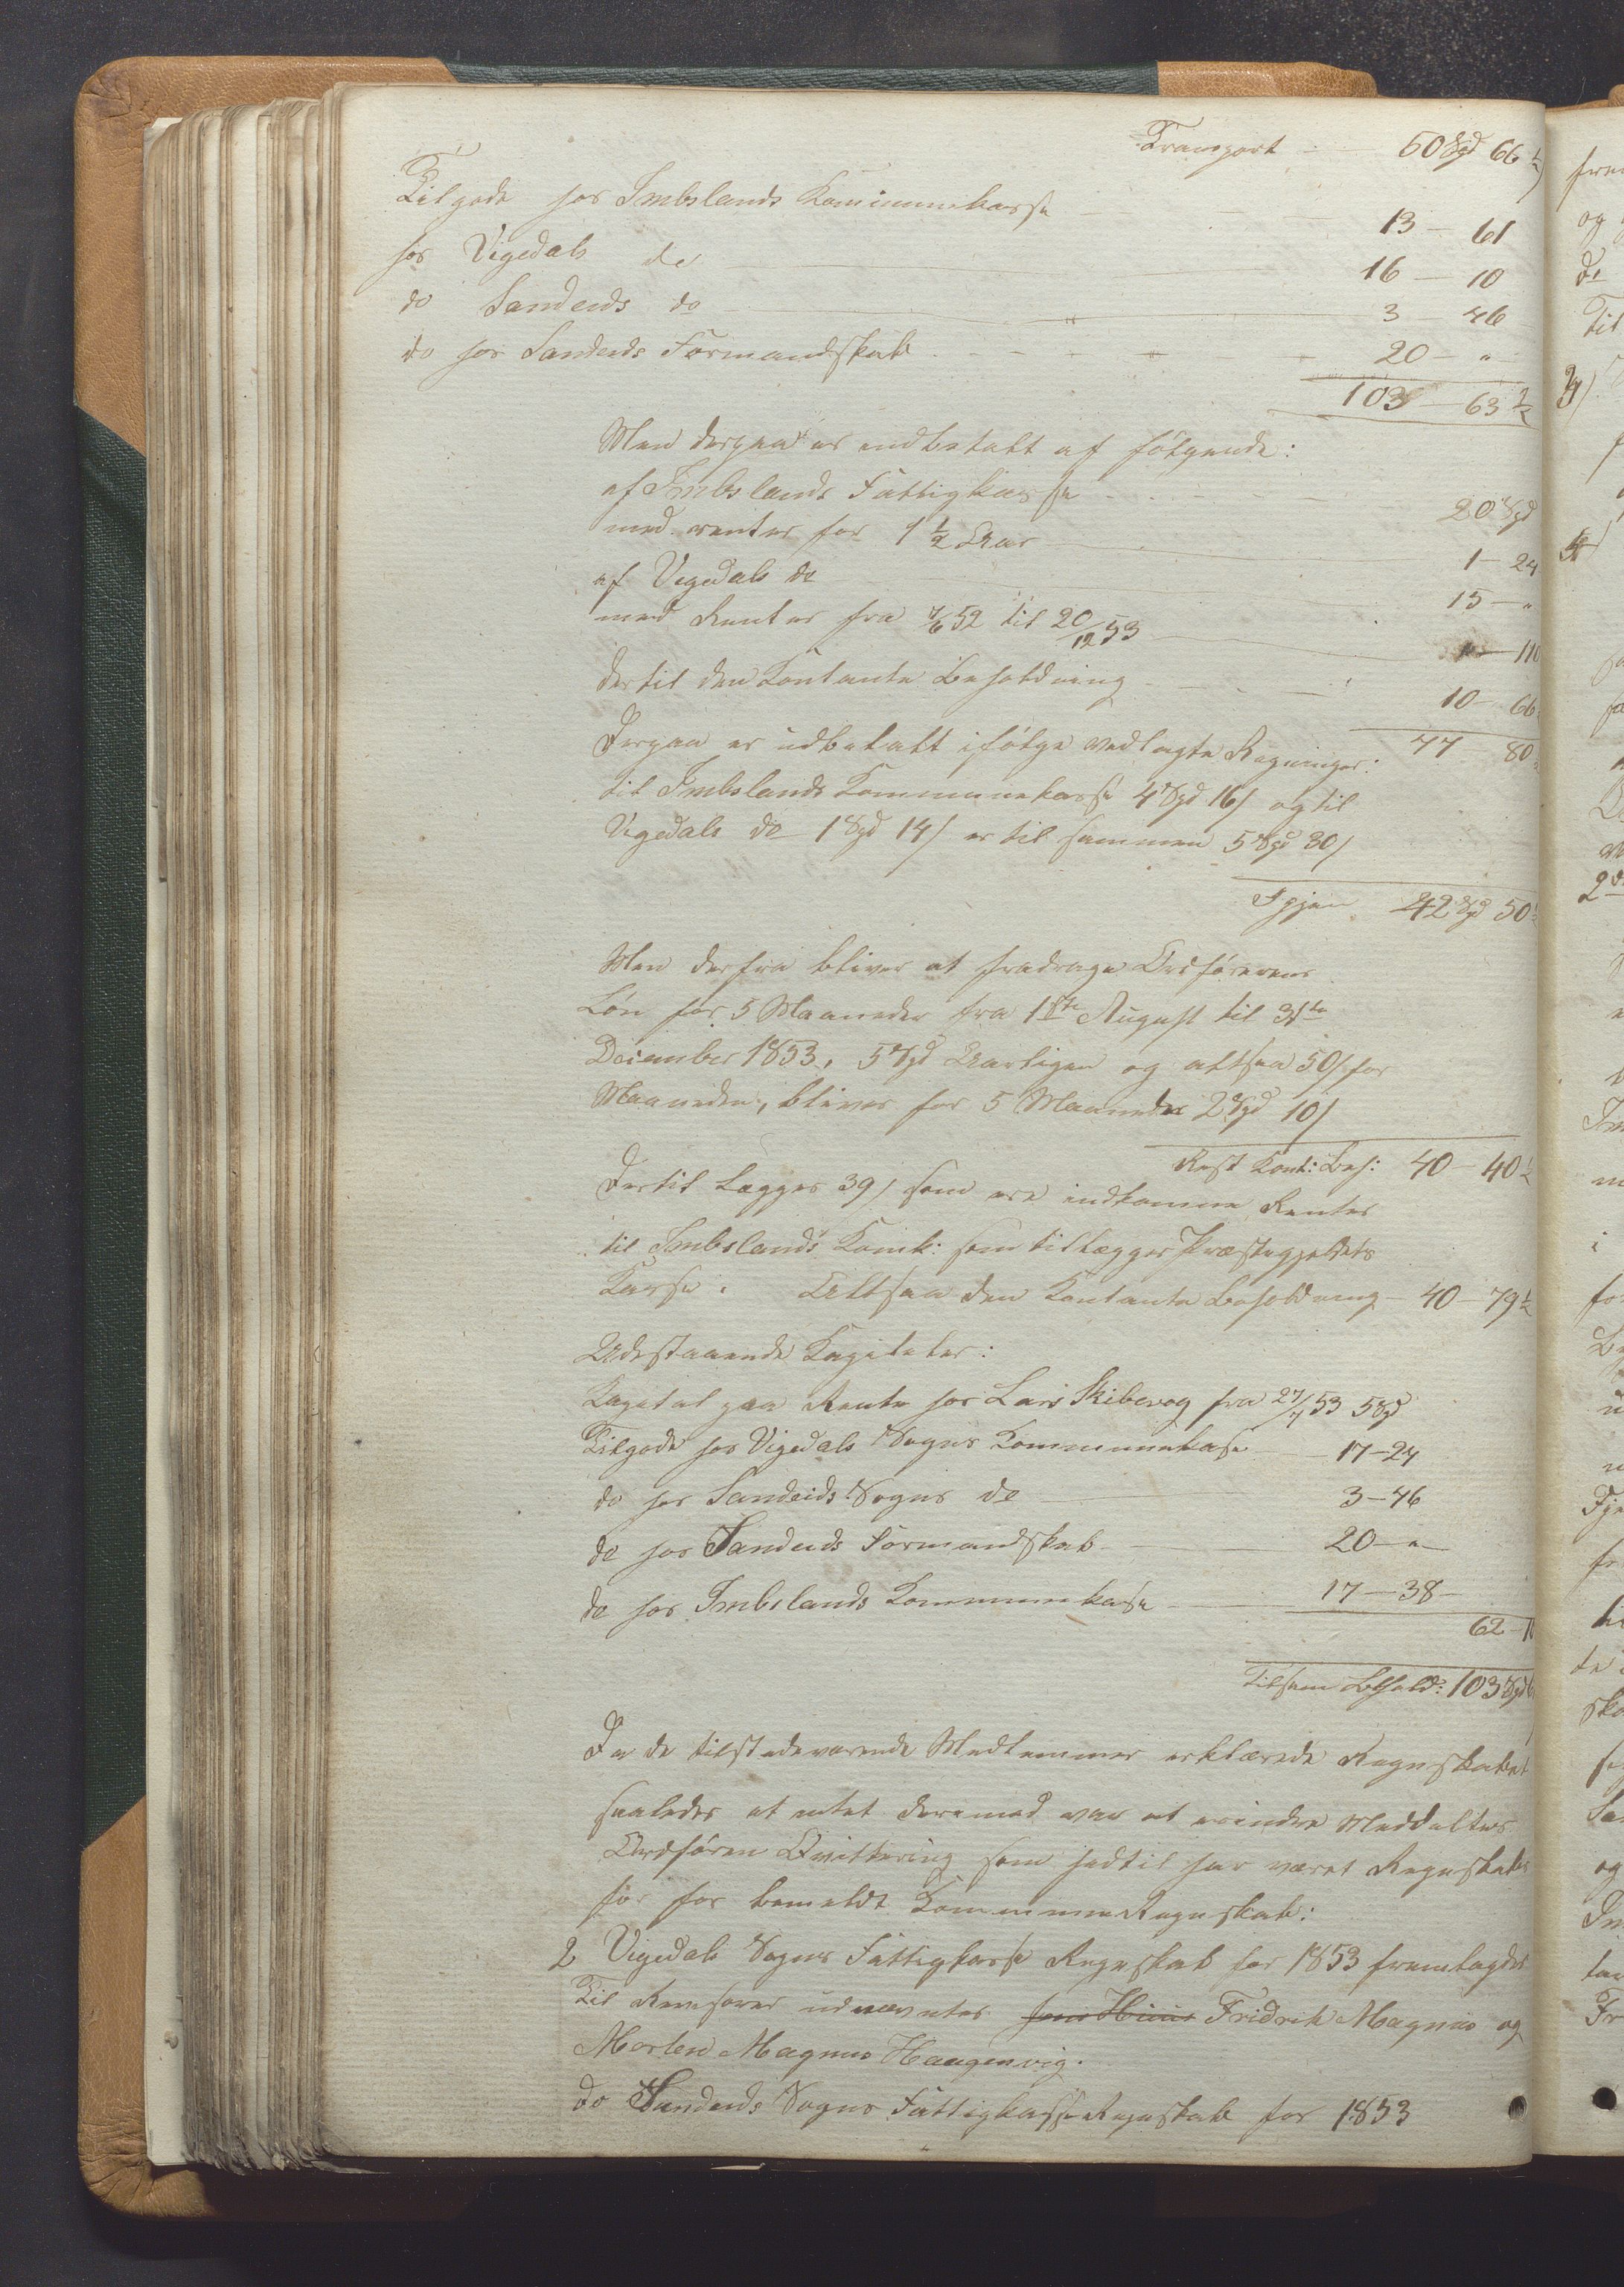 Transport - 50 Spd 66½
Tilgode hos Imbslands Kommunekasse - 13 - 61
hos Vigedals do - 16 - 10
do Sandeids do - 3 - 46
do hos Sandeids Formandskab - 20 - "
103 - 63½
Men derpaa er indbetalt af følgende:
af Imbslands Fattigkasse - 20 Spd
med renter for 1½ Aar - 1 - 24
af Vigedals do - 15 - "
med Renter fra 7/6 52 til 20/12 53 - 110
dertil den Contante Beholdning - 10 - 66
47 80
Derpaa er udbetalt ifølge vedlagte Regninger:
til Imbslands Kommunekasse 4 Spd 16/ og til
Vigedals do 1 Spd 14/ er til sammen 5 Spd 30/
Igjen 42 Spd 50½
Men derfra bliver at fradrage Ordførerens
Løn for 5 Maaneder fra 1ste August til 31te
December 1853, 5 Spd Aarligen og altsaa 50/ for
Maaneden, bliver for 5 Maaneder 2 Spd 10/
Rest Cont: Beh: 40 - 40½
Dertil lægges 39/ som ere indkomne Renter
til Imbslands Comk: som tillægges Præstegjeldets
Kasse. Altsaa den Contante Beholdning - 40 - 79½
Udestaaende Kapitaler:
Kapital paa Rente hos Lars Skibevog fra 27/4 53 5 Spd
Tilgode hos Vigedals Sogns Kommunekasse - 17 - 24
do hos Sandeids Sogns do - 3 - 46
do hos Sandeids Formandskab - 20 - "
do hos Imbslands Kommunekasse - 17 - 38 -
62 -
Tilsam Behold: 103 Spd
Da de tilstedeværende Medlemmer erklærede Regnskabet
saaledes at intet derimod var at erindre Meddeltes
Ordføren Qvittering som hidtil har været Regnskabs
før for bemeldt Kommune Regnskab:
2 Vigedals Sogns Fattigkasse Regnskab for 1853 fremlagdes
Til Revisorer udnævntes Fridrik Magnus og
Morten Magnus Haagenvig.
do Sandeids Sogns Fattigkasse Regnskab for 1853